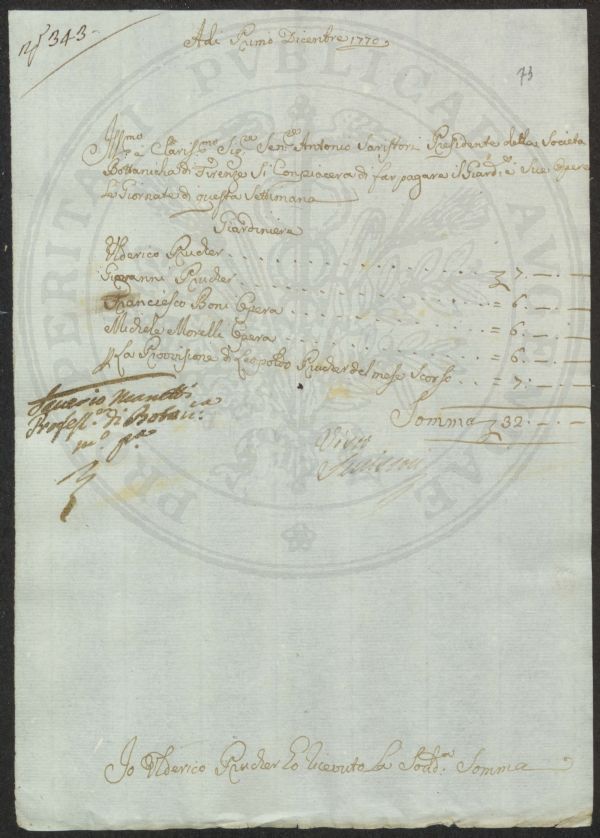 N.º 343.
Adi Primo Dicembre 1770
73
Ill.mo e Clariss.mo Sig.re Sen.re Antonio Serristori Presidente della Società
Bottanicha di Firenze Si Conpiacerà di far pagare il Giard.e e Sue Opere
Le Giornate di questa Settimana
Giardiniere
Ulderico Prucker . . . . . . . . . . . . 7. — . —
Giovanni Prucker . . . . . . . . . . = 6. — . —
Francesco Boni Opera . . . . . . . . = 6. — . —
Michele Morelli Opera . . . . . . . . = 6. — . —
P La Provisione di Leopoldo Prucker del mese Scorso . . = 7. — . —
Somma 32. — . —
Saverio Manetti
Profess.e di Botan.ca
m.o p.a
Visto
Io Ulderico Prucker ò ricevuto la Sud.a Somma
PROSPERITATI PUBLICAE AUGENDAE